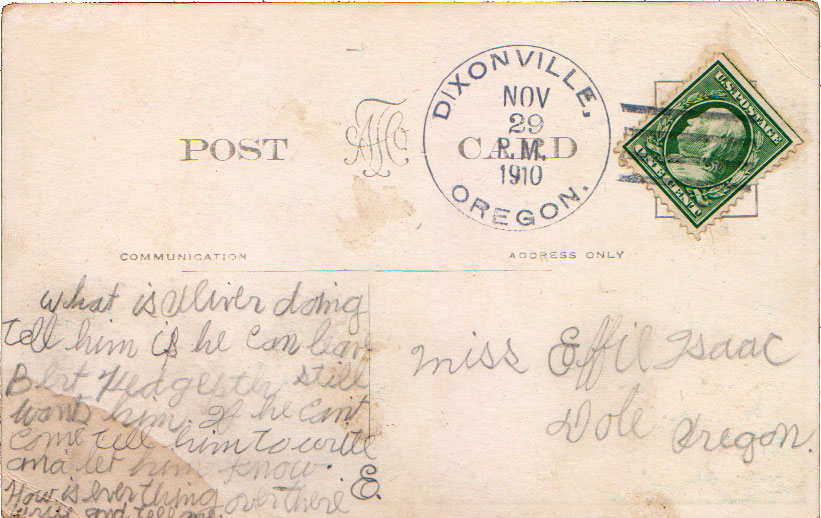 POST CARD
DIXONVILLE,
NOV
29
P.M.
1910
OREGON.
U.S. POSTAGE
ONE CENT
COMMUNICATION
ADDRESS ONLY
what is Oliver doing
tell him if he can leave
Bert still
wants him If he can't
come tell him to write
and let him know.
How is everthing over there E.
and tell me
Miss Effie Isaac
Dole Oregon.